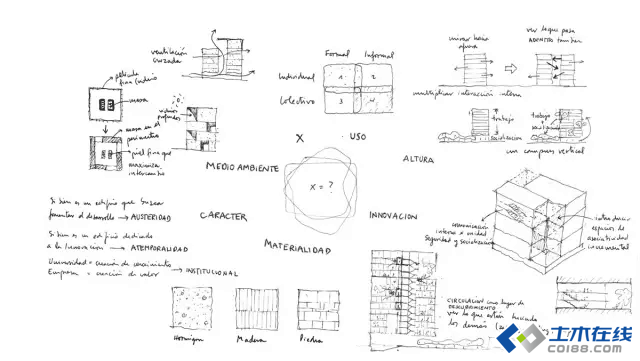 ventilación
cruzada
película
fina (vidrio)
masa
masa en el
perímetro
piel fina que
maximiza
intercambio
vidrios
profundos
Formal Informal
Individual
Colectivo
1
2
3
4
X · USO
MEDIO AMBIENTE
ALTURA
X = ?
CARACTER
INNOVACION
MATERIALIDAD
mirar hacia
afuera
ver lo que pasa
ADENTRO también
multiplicar interacción interna
trabajo
socialización
trabajo
un campus vertical
Si bien es un edificio que busca
fomentar el desarrollo → AUSTERIDAD
Si bien es un edificio dedicado
a la Innovación → ATEMPORALIDAD
Universidad = creación de conocimiento
Empresa = creación de valor → INSTITUCIONAL
Hormigón
Madera
Piedra
comunicación
interna x unidad
Seguridad y socialización
introducir
espacios de
asociatividad
incremental
CIRCULACION como lugar de
DESCUBRIMIENTO
ver lo que están haciendo
los demás
土木在线
coi88.com